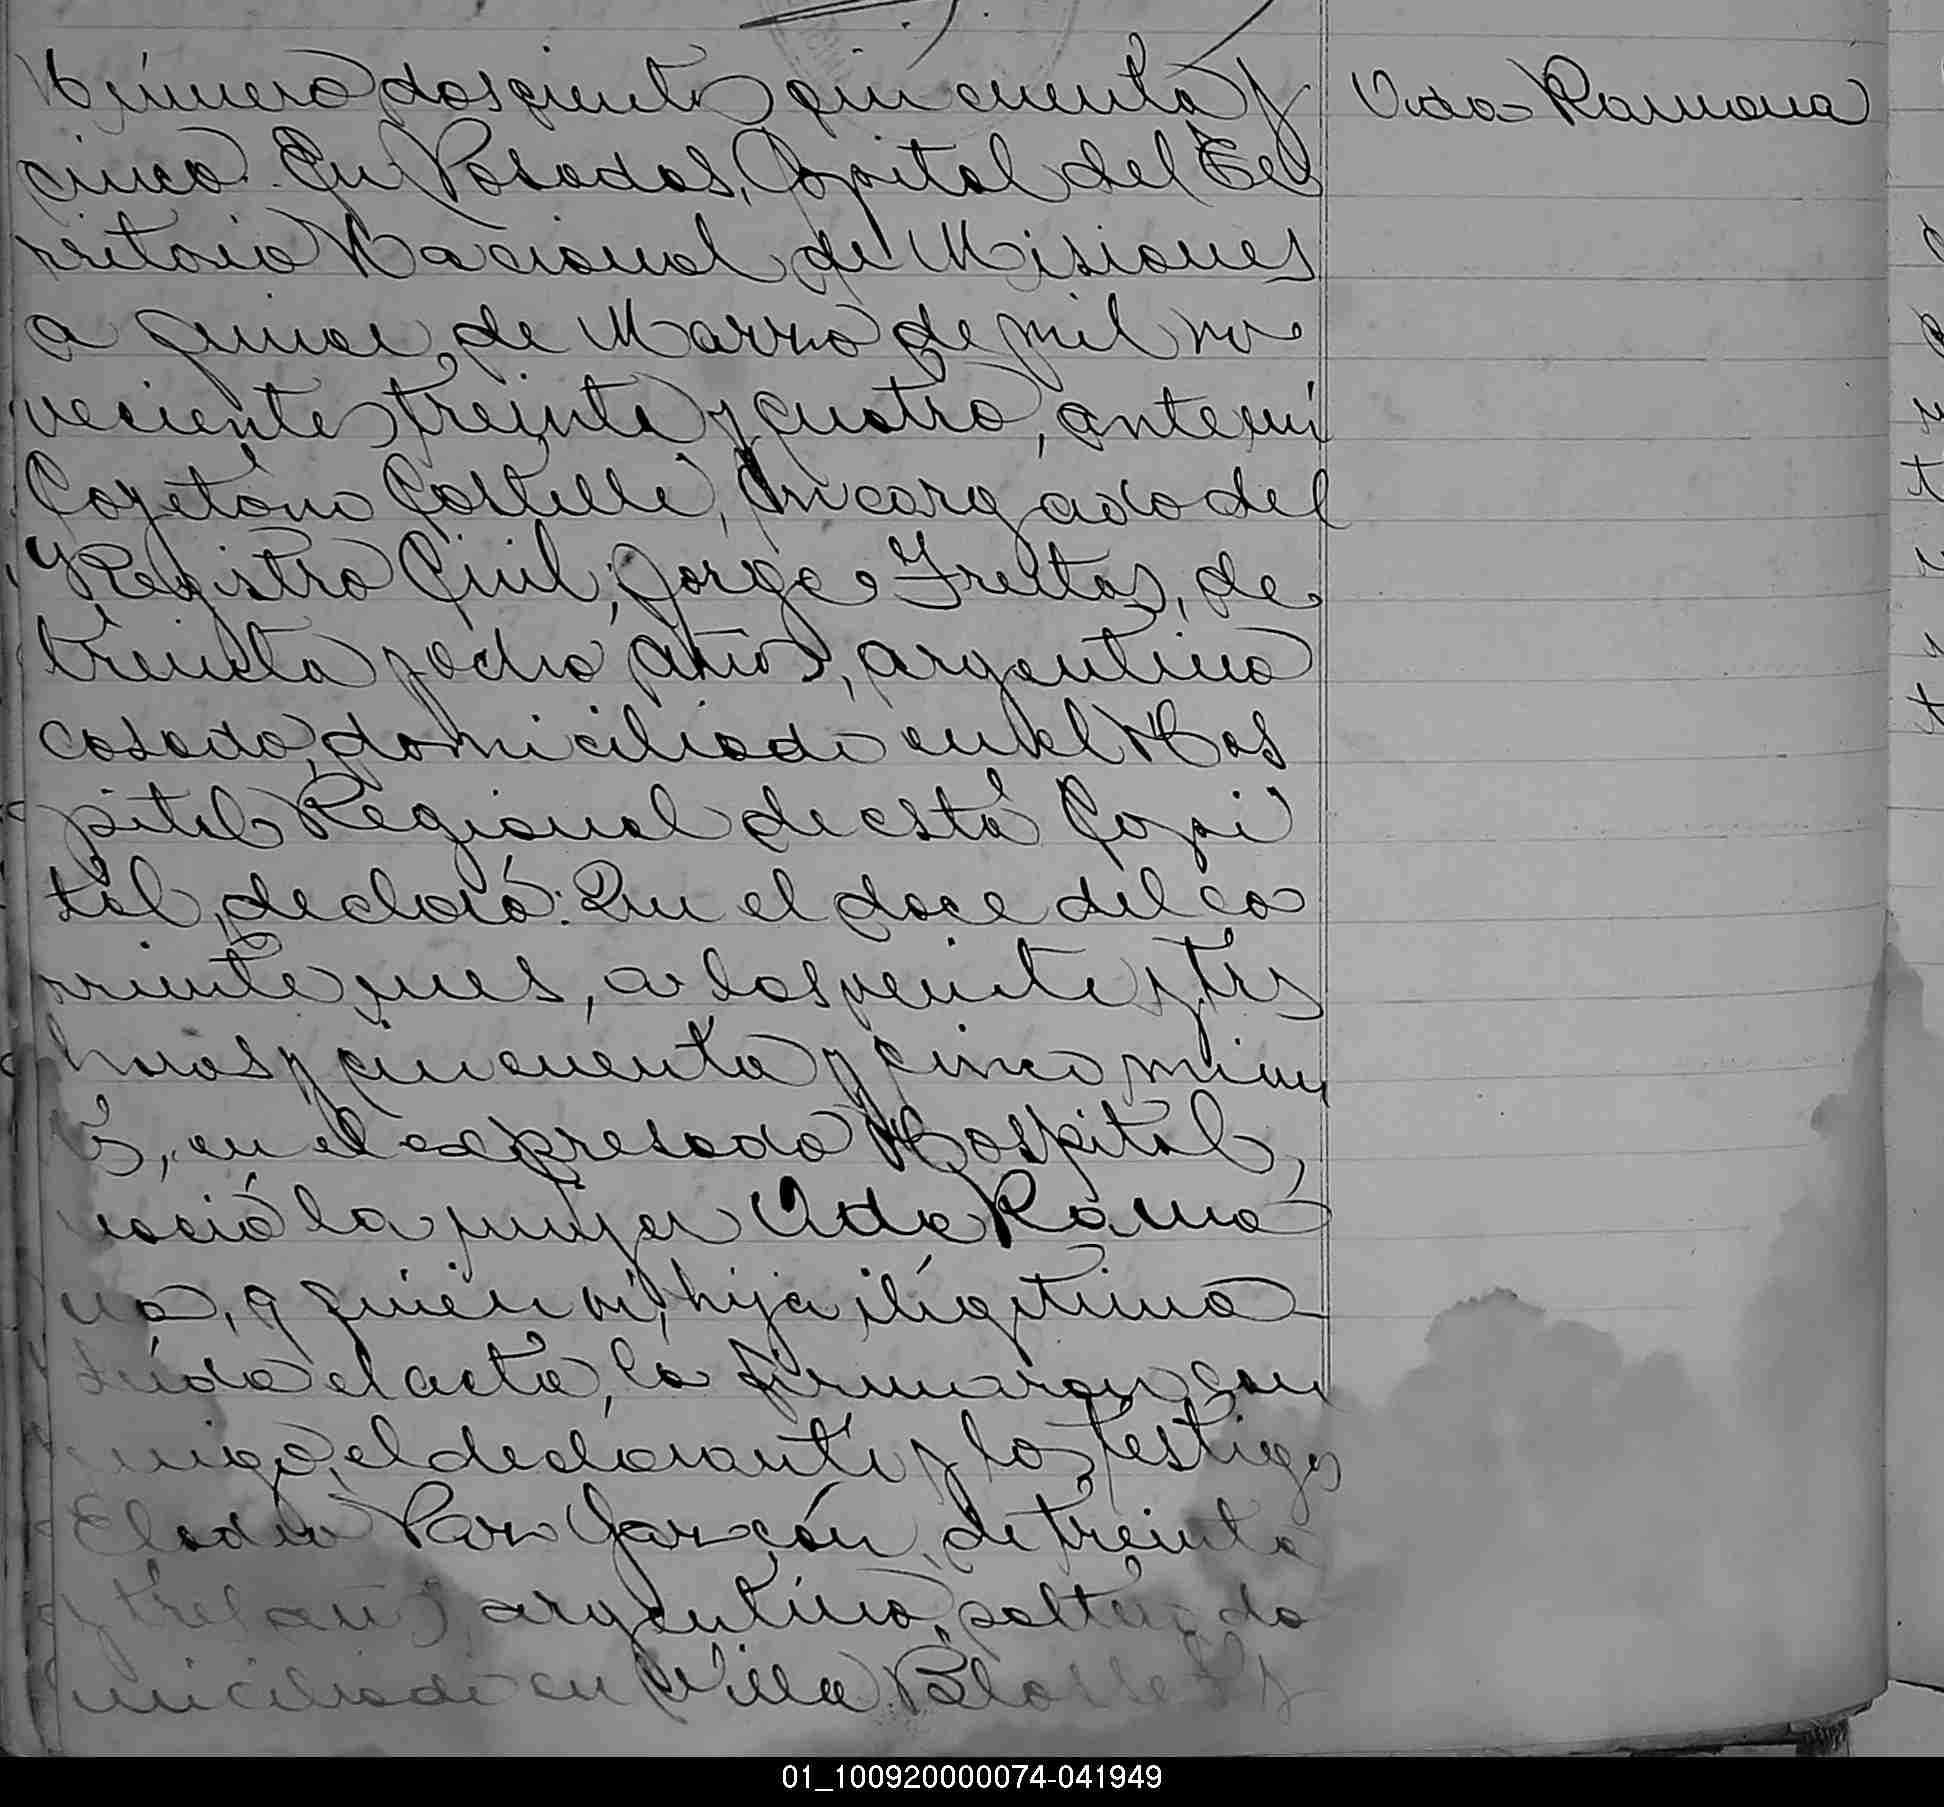 Número doscientos cincuenta y
cinco. En Posadas, Capital del Te
rritorio Nacional de Misiones
a quince de Marzo de mil no
vecientos treinta y cuatro, ante mi
Cayetáno Castelli, Encargado del
Registro Civil, Jorge Freitas, de
treinta y ocho años, argentino
casado, domiciliado en el Hos
pital Regional de esta Capi
tal, declaró: Que el doce del co
rriente mes, a las veinte y tres
horas y cincuenta y cinco minu
tos, en el expresado Hospital,
nació la mujer Uda Ramo
na, a quien ví, hija ilígitima
Leída el acta, la firmaron con
migo, el declarante y los testigos
Eladio Garzón, de treinta
y tres años, argentino, soltero do
miciliado en Villa y
Uda Ramona
01_100920000074-041949